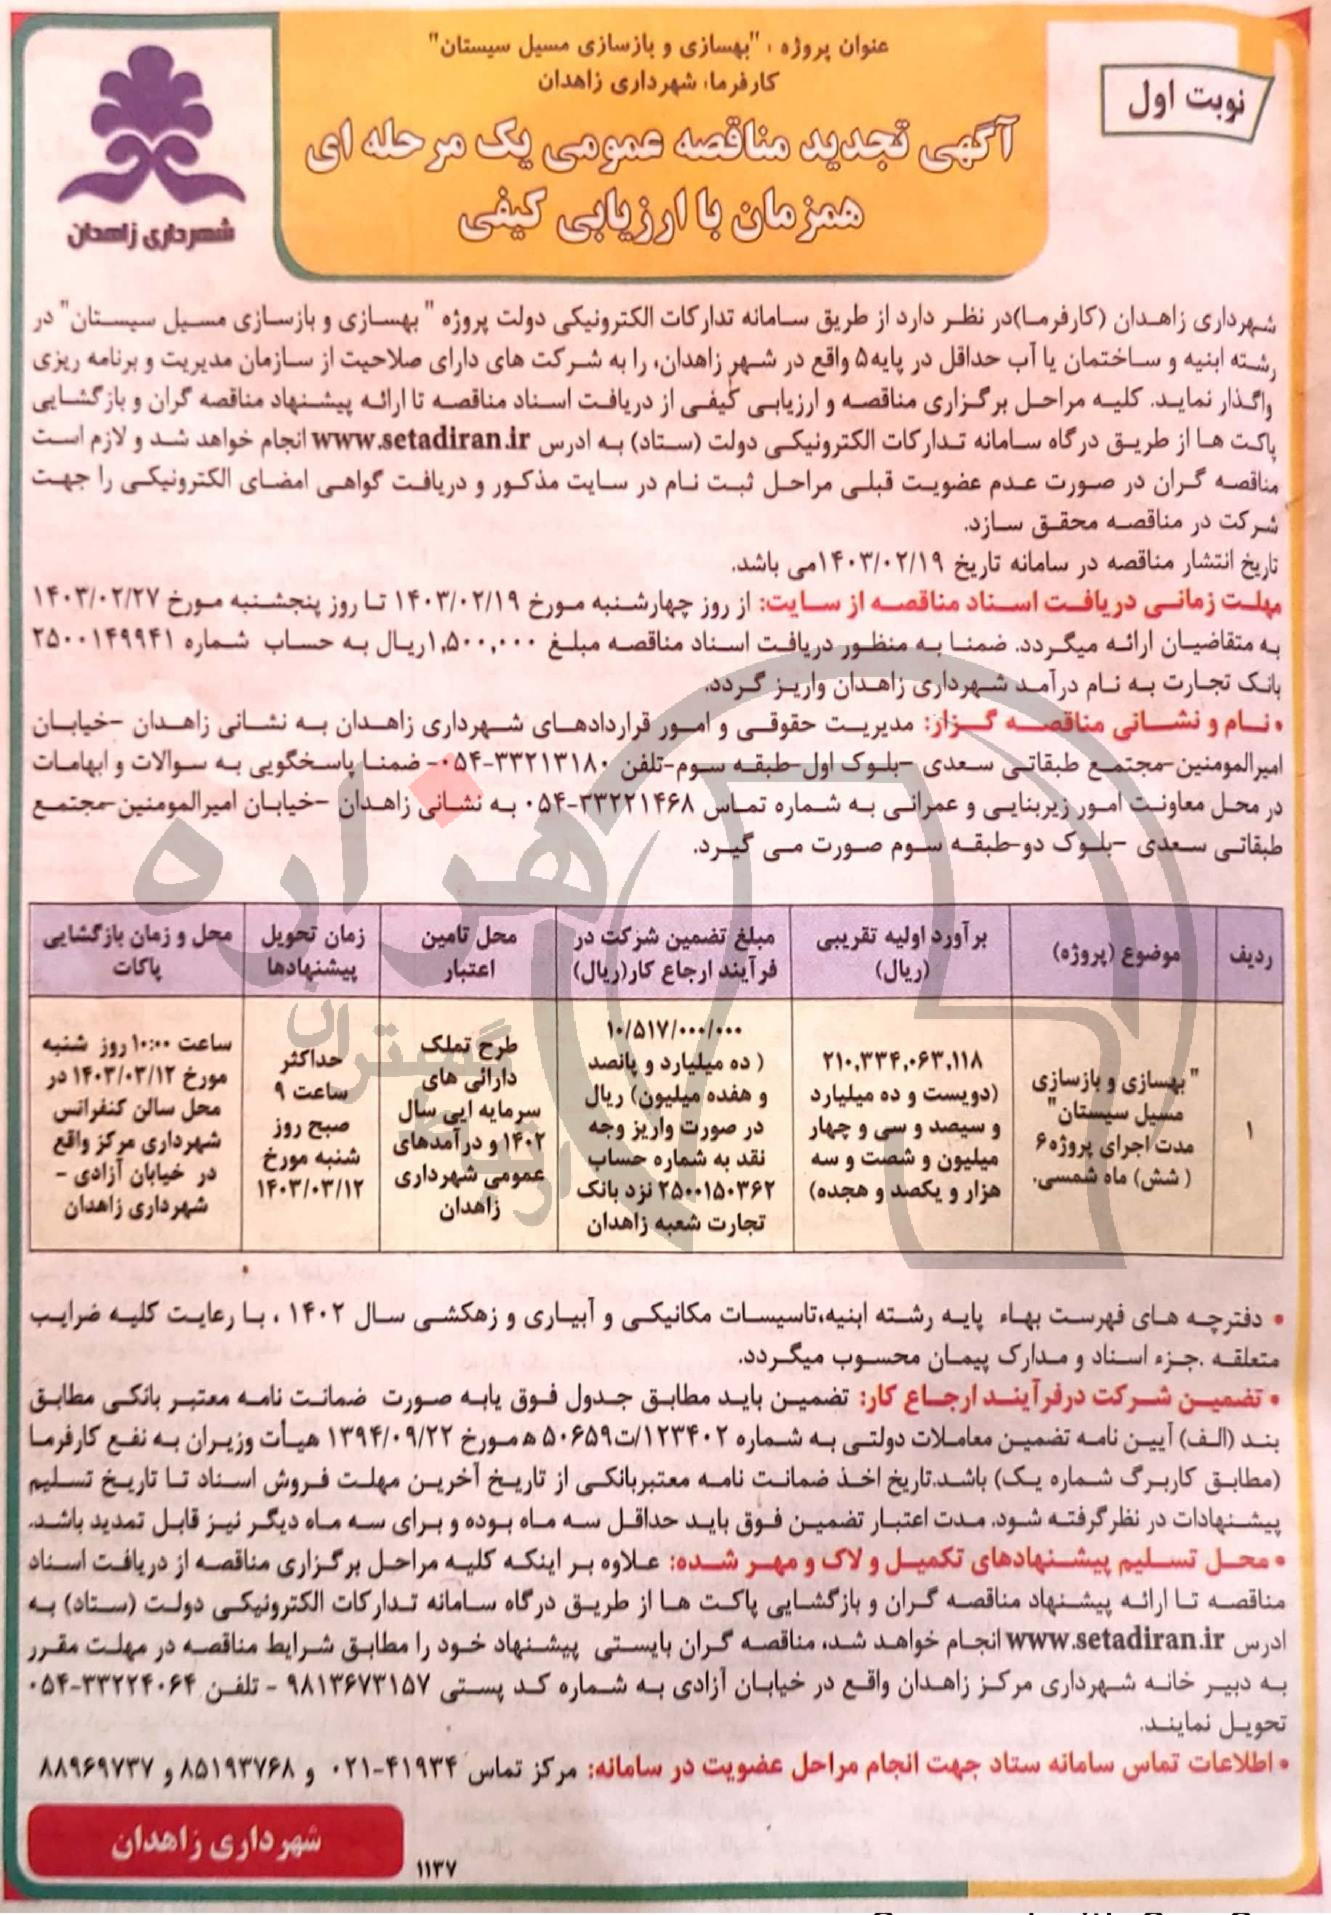 نوبت اول
عنوان پروژه : "بهسازی و بازسازی مسیل سیستان"
کارفرما: شهرداری زاهدان
آگهی تجدید مناقصه عمومی یک مرحله ای
همزمان با ارزیابی کیفی
شهرداری زاهدان
شهرداری زاهدان (کارفرما)در نظر دارد از طریق سامانه تدارکات الکترونیکی دولت پروژه " بهسازی و بازسازی مسیل سیستان" در
رشته ابنیه و ساختمان یا آب حداقل در پایه۵ واقع در شهر زاهدان، را به شرکت های دارای صلاحیت از سازمان مدیریت و برنامه ریزی
واگذار نماید. کلیه مراحل برگزاری مناقصه و ارزیابی کیفی از دریافت اسناد مناقصه تا ارائه پیشنهاد مناقصه گران و بازگشایی
پاکت ها از طریق درگاه سامانه تدارکات الکترونیکی دولت (ستاد) به ادرس www.setadiran.ir انجام خواهد شد و لازم است
مناقصه گران در صورت عدم عضویت قبلی مراحل ثبت نام در سایت مذکور و دریافت گواهی امضای الکترونیکی را جهت
شرکت در مناقصه محقق سازد.
تاریخ انتشار مناقصه در سامانه تاریخ ۱۴۰۳/۰۲/۱۹می باشد.
مهلت زمانی دریافت اسناد مناقصه از سایت: از روز چهارشنبه مورخ ۱۴۰۳/۰۲/۱۹ تا روز پنجشنبه مورخ ۱۴۰۳/۰۲/۲۷
به متقاضیان ارائه میگردد. ضمنا به منظور دریافت اسناد مناقصه مبلغ ۱,۵۰۰,۰۰۰ریال به حساب شماره ۲۵۰۰۱۴۹۹۴۱
بانک تجارت به نام درآمد شهرداری زاهدان واریز گردد.
• نام و نشانی مناقصه گزار: مدیریت حقوقی و امور قراردادهای شهرداری زاهدان به نشانی زاهدان –خیابان
امیرالمومنین-مجتمع طبقاتی سعدی –بلوک اول-طبقه سوم-تلفن ۳۳۲۱۳۱۸۰-۰۵۴- ضمنا پاسخگویی به سوالات و ابهامات
در محل معاونت امور زیربنایی و عمرانی به شماره تماس ۳۳۲۲۱۴۶۸-۰۵۴ به نشانی زاهدان –خیابان امیرالمومنین-مجتمع
طبقاتی سعدی –بلوک دو-طبقه سوم صورت می گیرد.
ردیف
موضوع (پروژه)
برآورد اولیه تقریبی
(ریال)
مبلغ تضمین شرکت در
فرآیند ارجاع کار(ریال)
محل تامین
اعتبار
زمان تحویل
پیشنهادها
محل و زمان بازگشایی
پاکات
۱
" بهسازی و بازسازی
مسیل سیستان"
مدت اجرای پروژه۶
(شش) ماه شمسی.
۲۱۰,۳۳۴,۰۶۳,۱۱۸
(دویست و ده میلیارد
و سیصد و سی و چهار
میلیون و شصت و سه
هزار و یکصد و هجده)
۱۰/۵۱۷/۰۰۰/۰۰۰
( ده میلیارد و پانصد
و هفده میلیون) ریال
در صورت واریز وجه
نقد به شماره حساب
۲۵۰۰۱۵۰۳۶۲ نزد بانک
تجارت شعبه زاهدان
طرح تملک
دارائی های
سرمایه ایی سال
۱۴۰۲ و درآمدهای
عمومی شهرداری
زاهدان
حداکثر
ساعت ۹
صبح روز
شنبه مورخ
۱۴۰۳/۰۳/۱۲
ساعت ۱۰:۰۰ روز شنبه
مورخ ۱۴۰۳/۰۳/۱۲ در
محل سالن کنفرانس
شهرداری مرکز واقع
در خیابان آزادی –
شهرداری زاهدان
• دفترچه های فهرست بهاء پایه رشته ابنیه،تاسیسات مکانیکی و آبیاری و زهکشی سال ۱۴۰۲ ، با رعایت کلیه ضرایب
متعلقه .جزء اسناد و مدارک پیمان محسوب میگردد.
• تضمین شرکت درفرآیند ارجاع کار: تضمین باید مطابق جدول فوق یابه صورت ضمانت نامه معتبر بانکی مطابق
بند (الف) آیین نامه تضمین معاملات دولتی به شماره ۱۲۳۴۰۲/ت۵۰۶۵۹ ه مورخ ۱۳۹۴/۰۹/۲۲ هیأت وزیران به نفع کارفرما
(مطابق کاربرگ شماره یک) باشد.تاریخ اخذ ضمانت نامه معتبربانکی از تاریخ آخرین مهلت فروش اسناد تا تاریخ تسلیم
پیشنهادات در نظرگرفته شود. مدت اعتبار تضمین فوق باید حداقل سه ماه بوده و برای سه ماه دیگر نیز قابل تمدید باشد.
• محل تسلیم پیشنهادهای تکمیل و لاک و مهر شده: علاوه بر اینکه کلیه مراحل برگزاری مناقصه از دریافت اسناد
مناقصه تا ارائه پیشنهاد مناقصه گران و بازگشایی پاکت ها از طریق درگاه سامانه تدارکات الکترونیکی دولت (ستاد) به
ادرس www.setadiran.ir انجام خواهد شد، مناقصه گران بایستی پیشنهاد خود را مطابق شرایط مناقصه در مهلت مقرر
به دبیر خانه شهرداری مرکز زاهدان واقع در خیابان آزادی به شماره کد پستی ۹۸۱۳۶۷۳۱۵۷ - تلفن ۳۳۲۲۴۰۶۴-۰۵۴
تحویل نمایند.
• اطلاعات تماس سامانه ستاد جهت انجام مراحل عضویت در سامانه: مرکز تماس ۴۱۹۳۴-۰۲۱ و ۸۵۱۹۳۷۶۸ و ۸۸۹۶۹۷۳۷
شهرداری زاهدان
۱۱۳۷